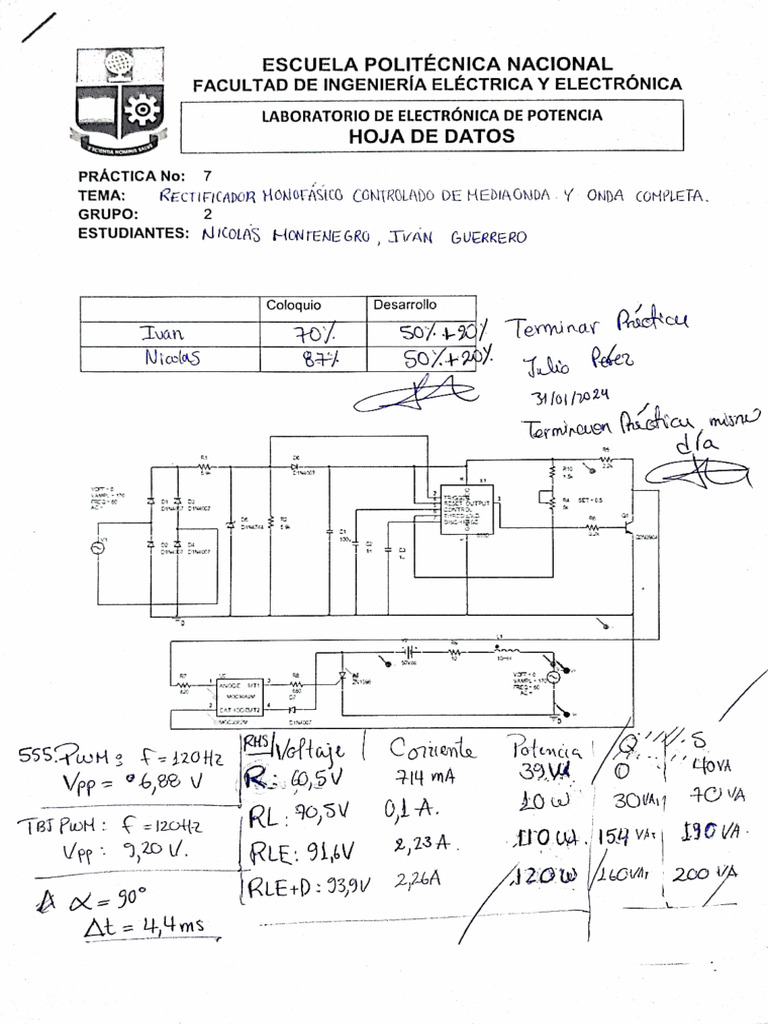 ESCUELA POLITÉCNICA NACIONAL
FACULTAD DE INGENIERÍA ELÉCTRICA Y ELECTRÓNICA
LABORATORIO DE ELECTRÓNICA DE POTENCIA
HOJA DE DATOS
PRÁCTICA No: 7
TEMA: RECTIFICADOR MONOFÁSICO CONTROLADO DE MEDIA ONDA Y ONDA COMPLETA.
GRUPO: 2
ESTUDIANTES: NICOLÁS MONTENEGRO, IVÁN GUERRERO
Coloquio Desarrollo
Ivan 70% 50%+20%
Nicolás 87% 50%+20%
Terminar Práctica
Julio Pérez
31/01/2024
Terminaron Práctica mismo
día
VOFF = 0
VAMPL = 170
FREQ = 60
AC =
V1
D1
D1N4007
D3
D1N4007
D2
D1N4007
D4
D1N4007
R1
D5
R2
D6
D1N4007
C1
100u
X1
TRIGGER
RESET OUTPUT
CONTROL
THRESHOLD
R10
R4
5k
SET = 0.5
R5
2.2k
R6
2.2k
Q2N3904
R7
ANODE MT1
MOC3062M
R8
D1N4007
R9
L1
VOFF = 0
VAMPL = 170
FREQ = 60
AC =
555: PWM: f = 120Hz
Vpp = 6,88 V
TBJ PWM: f = 120Hz
Vpp: 9,20 V.
α = 90°
Δt = 4,4 ms
RMS/Voltaje Corriente Potencia Q S
R: 60,5V 714 mA 39W 0 40VA
RL: 70,5V 0,1 A. 10 W 30VAr 70 VA
RLE: 91,6V 2,23 A. 110 W 154 VAr 190 VA.
RLE+D: 93,9V 2,26A 120W 160VAr 200 VA